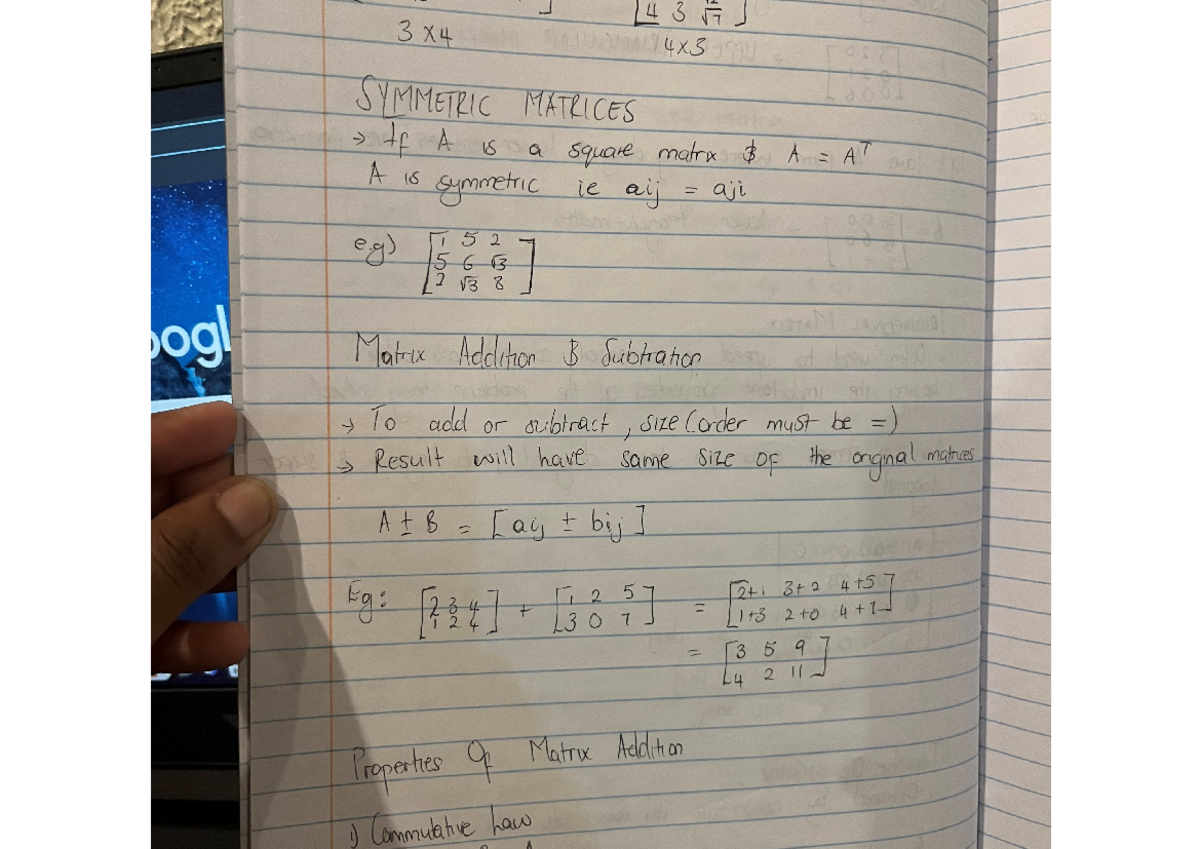 4 3 √7
3 x4
4x3
SYMMETRIC MATRICES
→ If A is a square matrix & A = Aᵀ
A is symmetric ie aij = aji
e.g) [1 5 2
5 6 √3
2 √3 8]
Matrix Addition & Subtration
→ To add or subtract, size (order must be =)
→ Result will have same size of the orignal matrices
A ± B = [aij ± bij]
Eg: [2 3 4 + [1 2 5] = [2+1 3+2 4+5
1 2 4] 3 0 7] 1+3 2+0 4+7]
= [3 5 9
4 2 11]
Properties Of Matrix Addition
1) Commutative Law
oogl